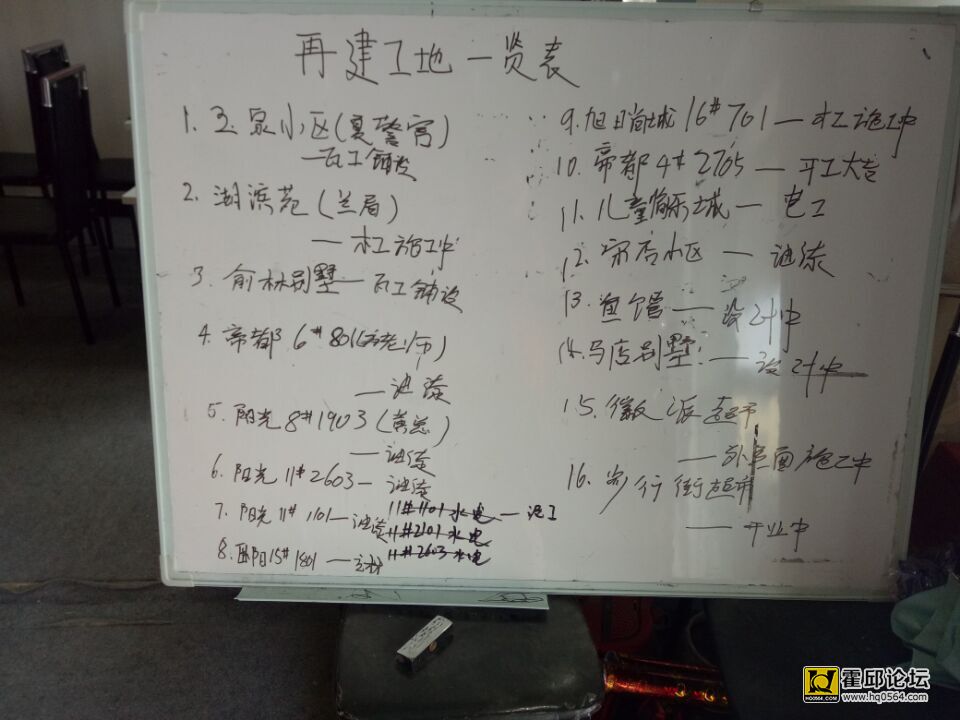 再建工地一览表
1. 玉泉小区(夏警官)
—瓦工铺设
2. 湖滨苑(兰眉)
—木工施工中
3. 俞林别墅—瓦工铺设
4. 帝都 6# 801(
—油漆
5. 阳光 8# 1903(黄总)
—油漆
6. 阳光 11# 2603—油漆
7. 阳光 11# 1101—油漆
11# 1101 水电—泥工
11# 2101 水电
11# 2603 水电
8. 阳 15# 1801—主材
9. 旭日尚城 16# 701—木工施工中
10. 帝都 4# 2705—开工大吉
11. 儿童俱乐城—电工
12. 宋店小区—油漆
13. 鱼馆—设计中
14. 马店别墅—设计中
15. 徽派超市
—外立面施工中
16. 步行街超市
—开业中
霍邱论坛
HQ0564.COM
www.hq0564.com